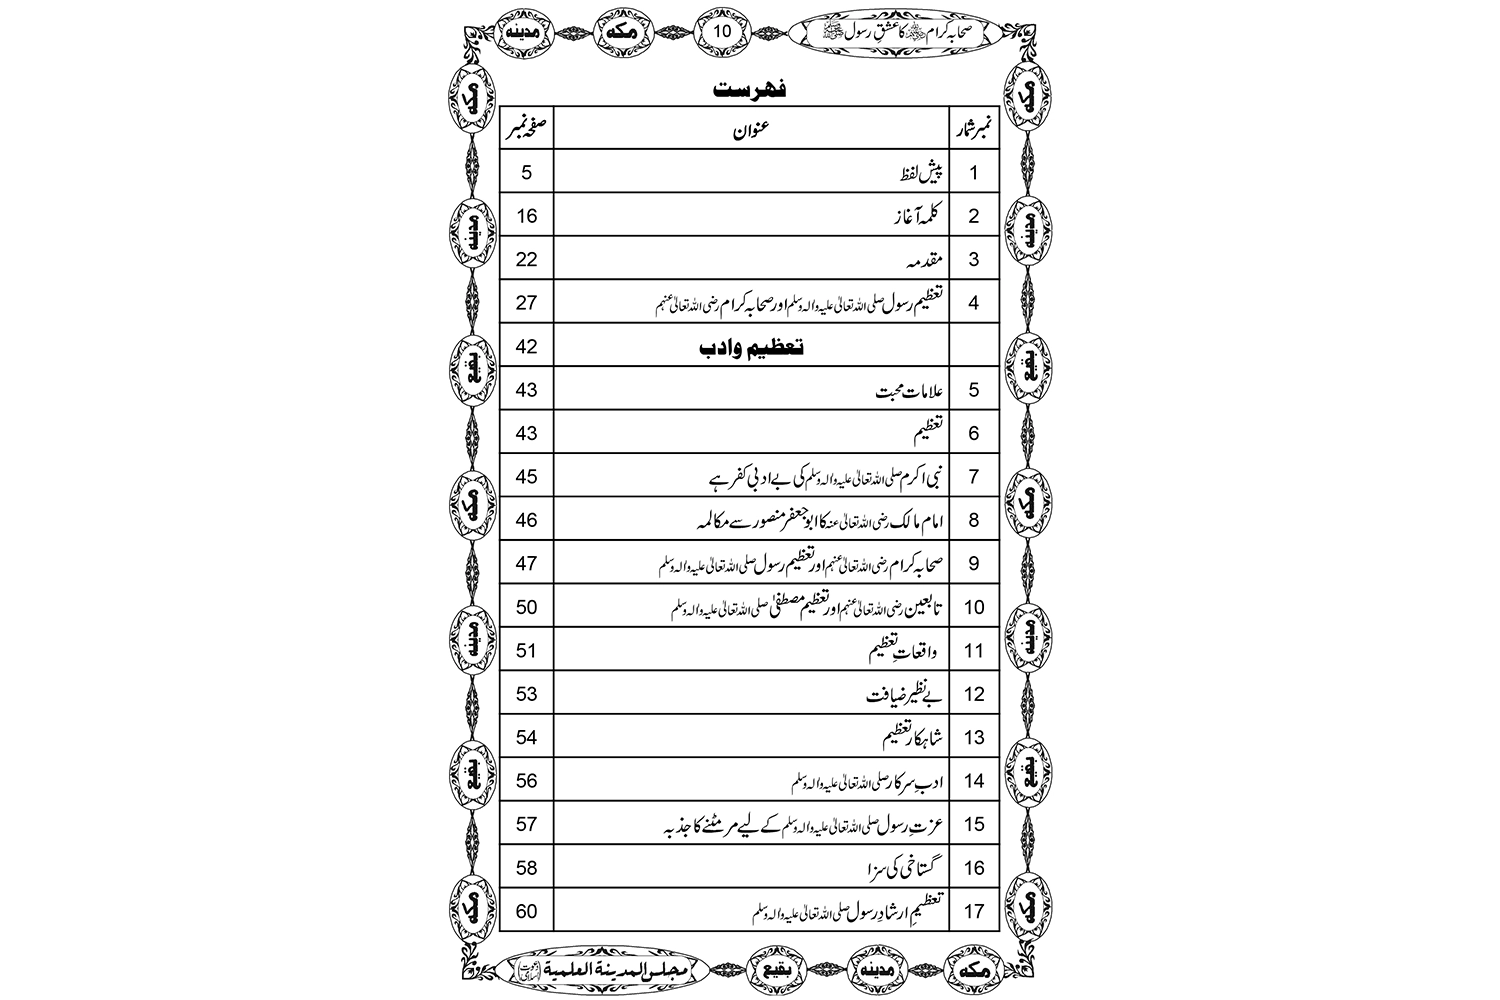 صحابہ کرام کا عشقِ رسول ﷺ 10 مکہ مدینہ
فہرست
نمبر شمار عنوان صفحہ نمبر
1 پیش لفظ 5
2 کلمہ آغاز 16
3 مقدمہ 22
4 تعظیم رسول صلی اللہ تعالیٰ علیہ والہ وسلم اور صحابہ کرام رضی اللہ تعالیٰ عنہم 27
تعظیم وادب 42
5 علامات محبت 43
6 تعظیم 43
7 نبی اکرم صلی اللہ تعالیٰ علیہ والہ وسلم کی بے ادبی کفر ہے 45
8 امام مالک رضی اللہ تعالیٰ عنہ کا ابو جعفر منصور سے مکالمہ 46
9 صحابہ کرام رضی اللہ تعالیٰ عنہم اور تعظیم رسول صلی اللہ تعالیٰ علیہ والہ وسلم 47
10 تابعین رضی اللہ تعالیٰ عنہم اور تعظیم مصطفیٰ صلی اللہ تعالیٰ علیہ والہ وسلم 50
11 واقعاتِ تعظیم 51
12 بے نظیر ضیافت 53
13 شاہکار تعظیم 54
14 ادبِ سرکار صلی اللہ تعالیٰ علیہ والہ وسلم 56
15 عزتِ رسول صلی اللہ تعالیٰ علیہ والہ وسلم کے لیے مر مٹنے کا جذبہ 57
16 گستاخی کی سزا 58
17 تعظیمِ ارشادِ رسول صلی اللہ تعالیٰ علیہ والہ وسلم 60
مکہ
مدینہ
بقیع
مکہ
مدینہ
بقیع
مکہ
مکہ
مدینہ
بقیع
مکہ
مدینہ
بقیع
مکہ
مکہ مدینہ بقیع مجلس المدینۃ العلمیۃ (دعوت اسلامی)